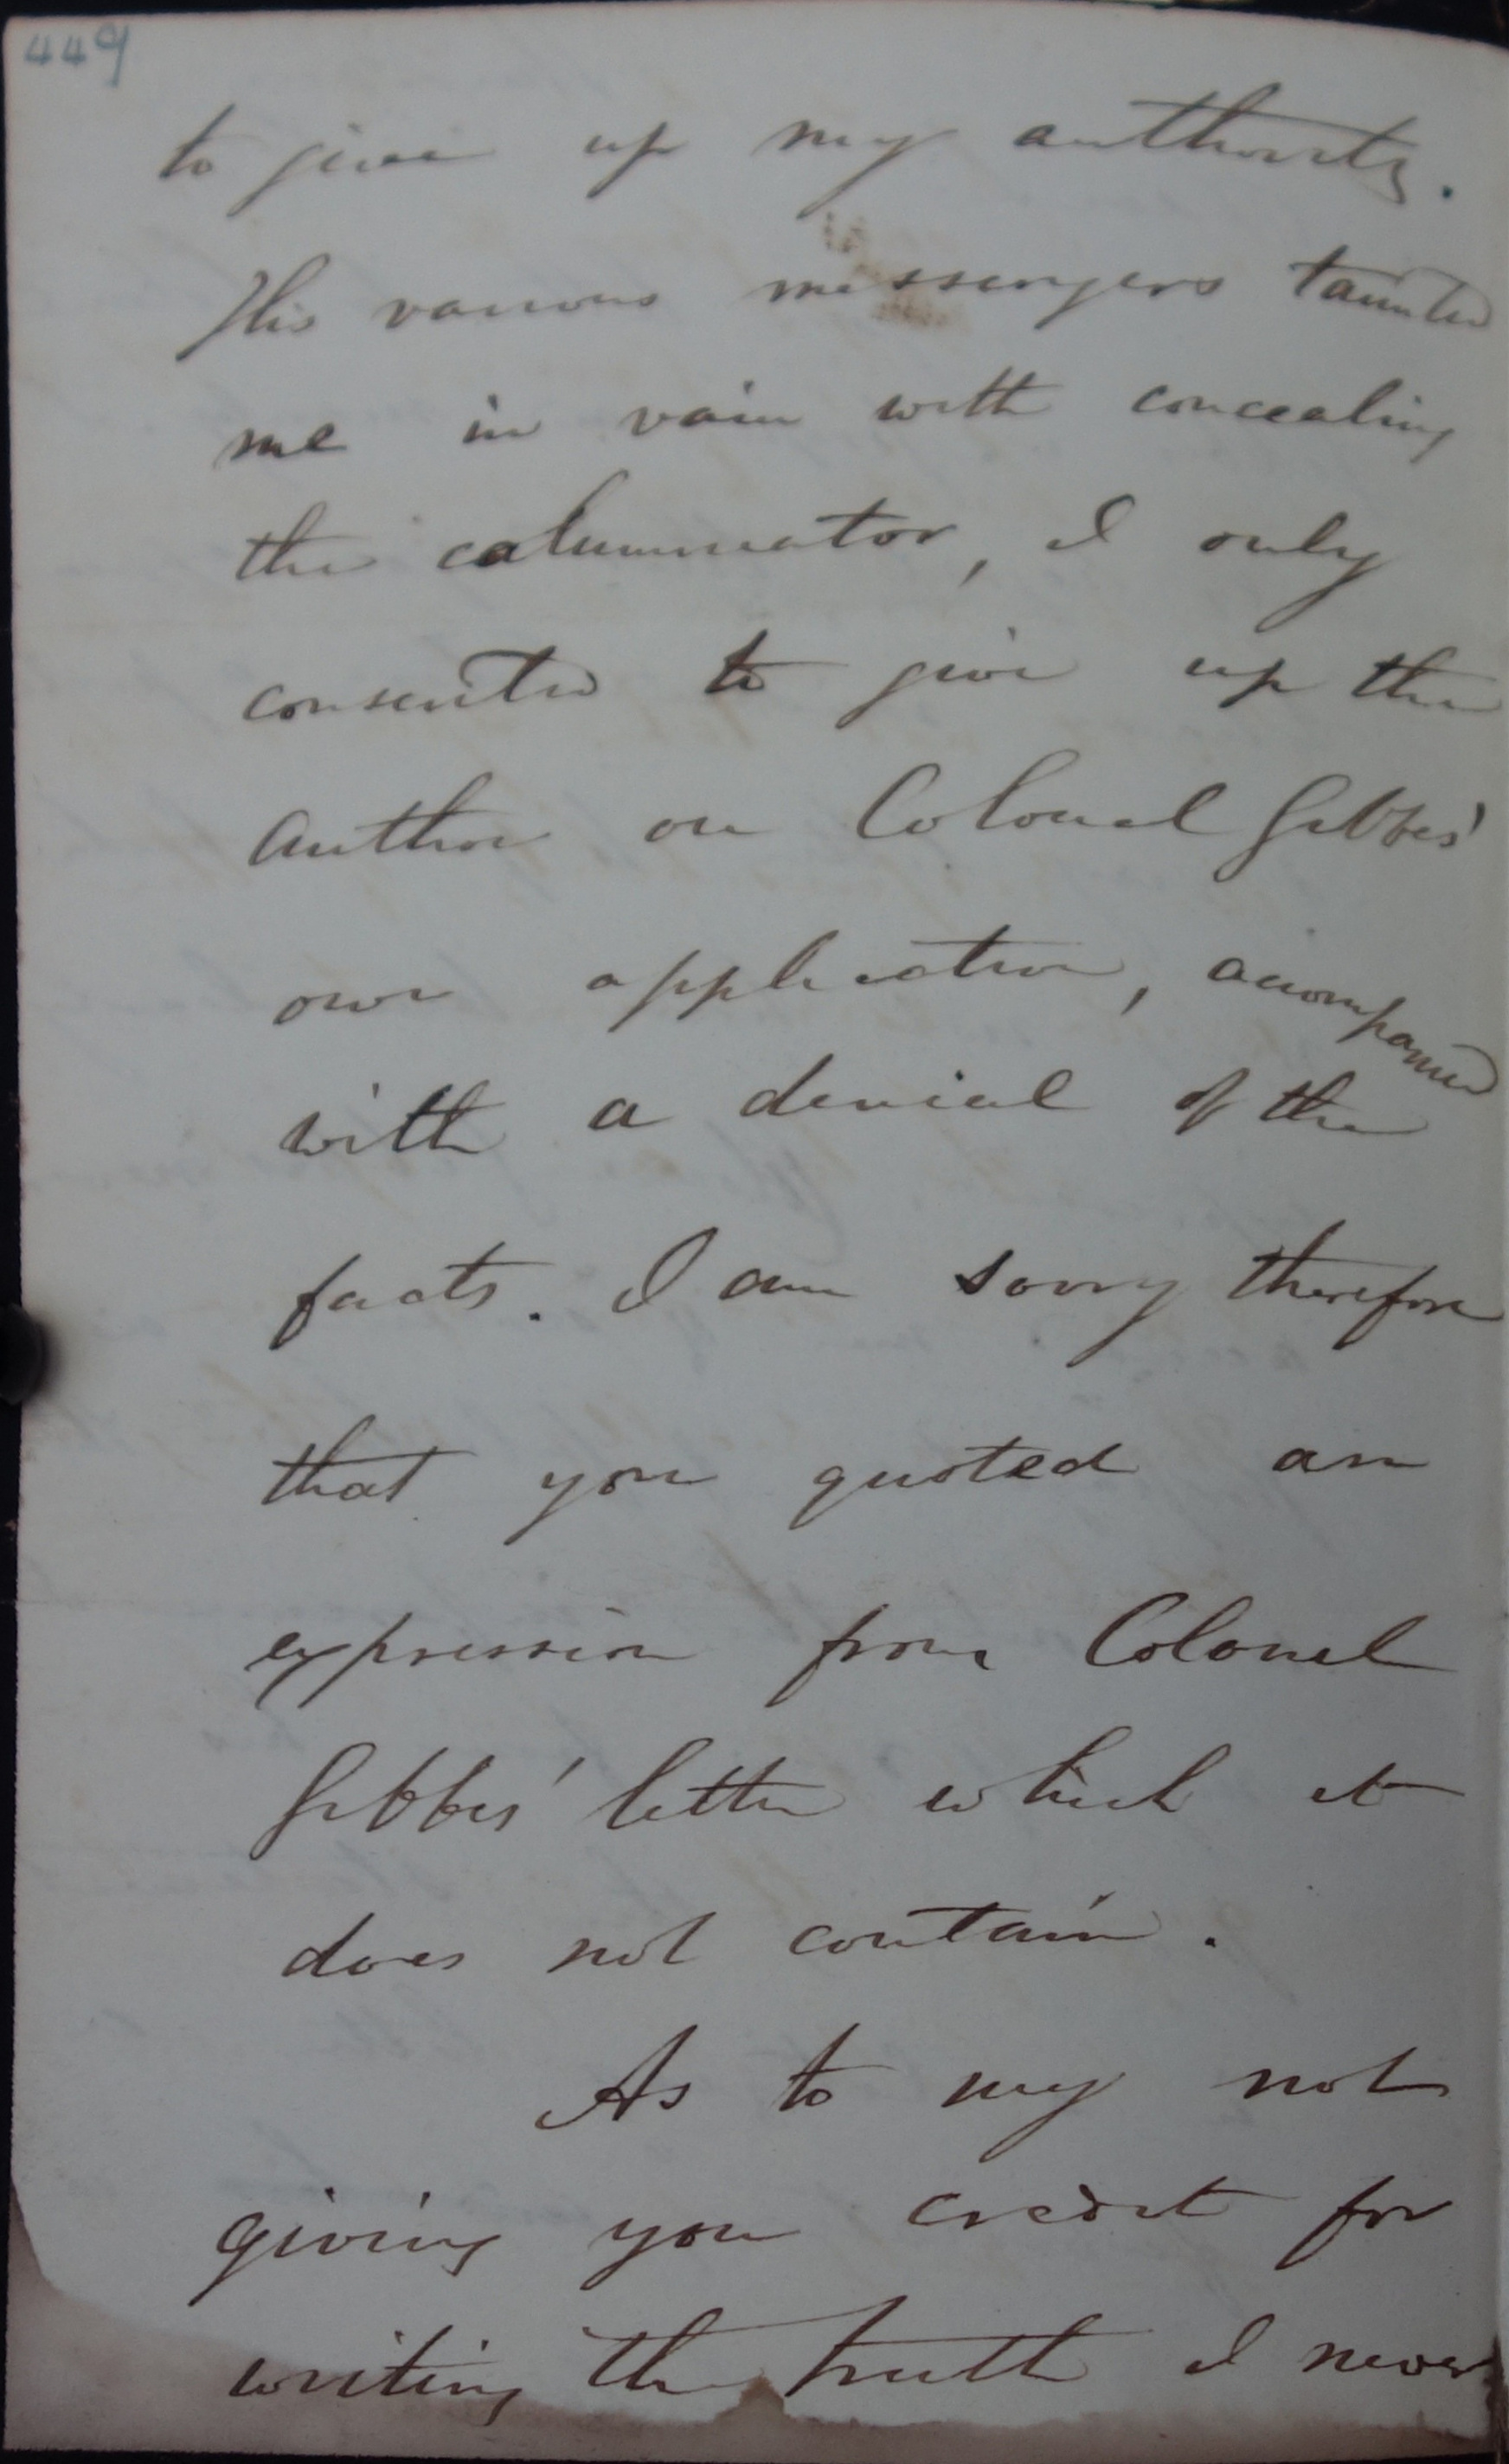 449
to give up my authority.
His various messengers taunted
me in vain with concealing
the calumniator, I only
consented to give up the
author on Colonel Gibbes'
own application, accompanied
with a denial of the
facts. I am sorry therefore
that you quoted an
expression from Colonel
Gibbes' letter which it
does not contain.
As to my not
giving you credit for
writing the truth I never